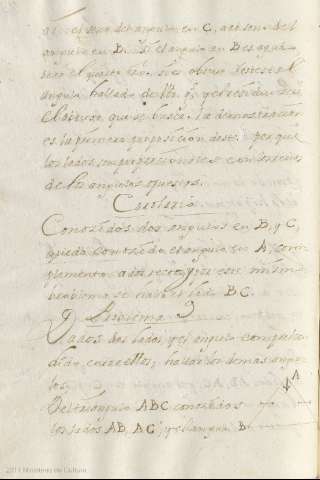 el seno del angulo en C, al seno del
angulo en B. Si el angulo en B es agu
sera el que si es obtuso restese el
angulo hallado de 180 gs. y el residuo sera
el obtuso, que se busca. La demostracion
es la primera proposicion deste. porque
los lados son proporcionales con los senos
de los angulos opuestos.
Corolario
Conocidos dos angulos en B, y C,
queda conocido el angulo en A, com
plemento a dos rectos, y por este mismo
problema se hallará el lado BC.
Problema
Dados dos lados, y el angulo comprehen
dido entre ellos, hallar los demas angu
los
Del triangulo ABC conocidos
los lados AB, AC, y el angulo B.
2011 Ministerio de Cultura